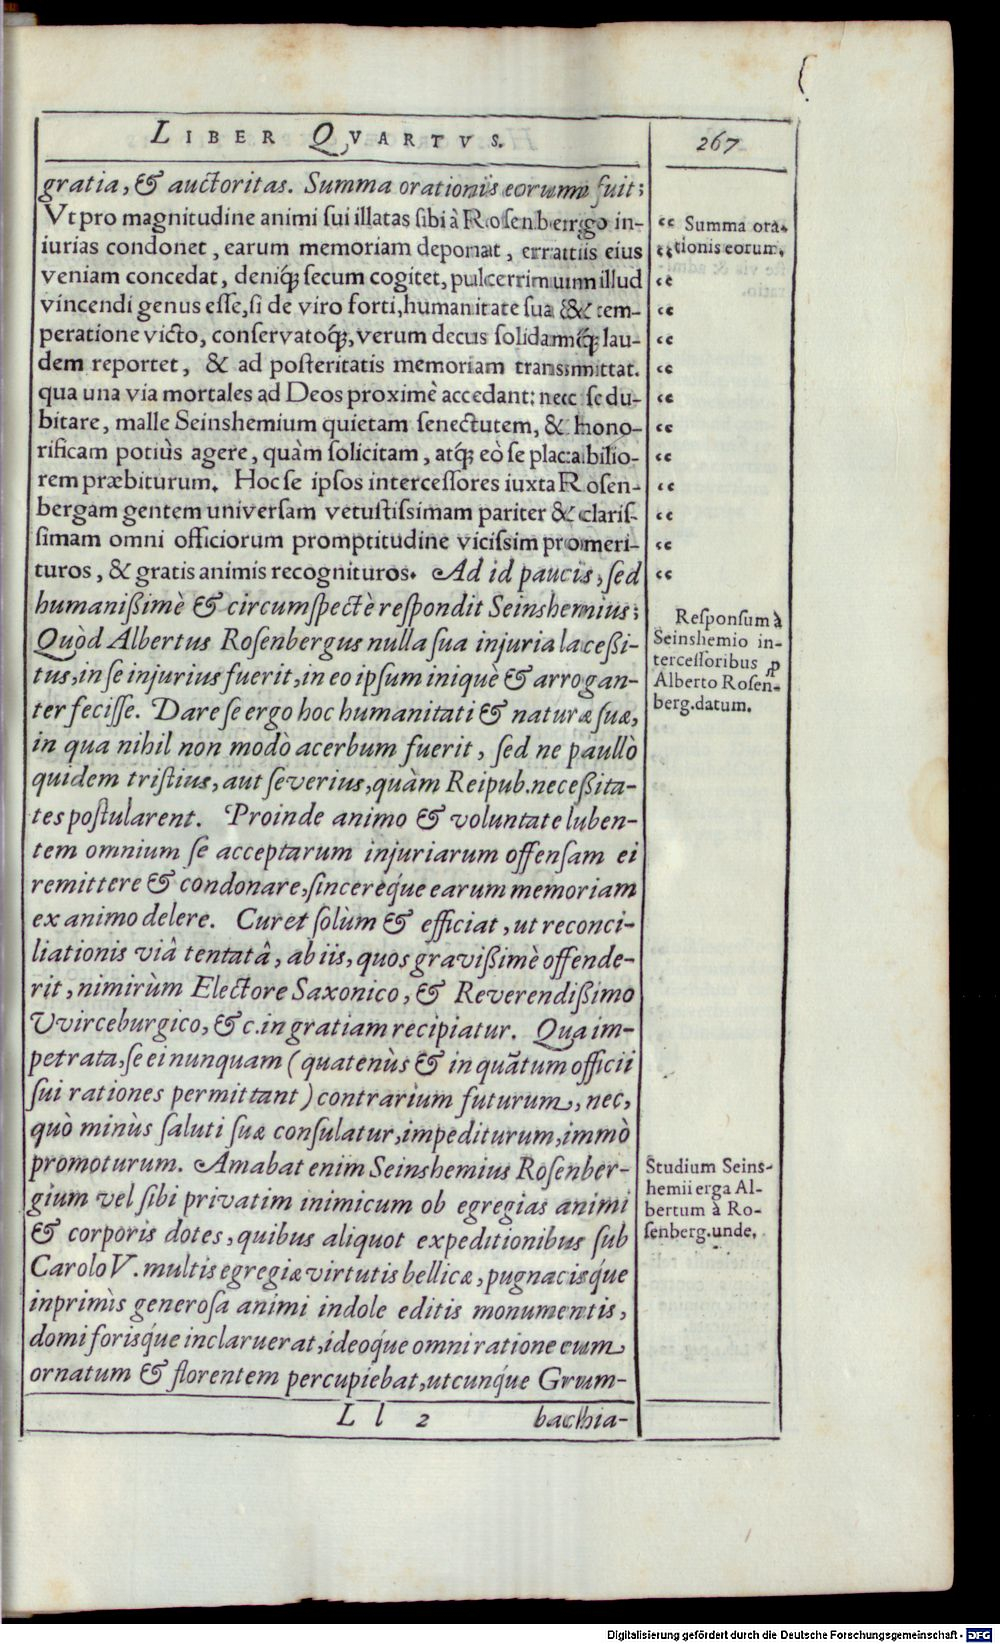 LIBER QVARTVS.
267
gratia, & auctoritas. Summa orationis eorum fuit;
Vt pro magnitudine animi sui illatas sibi à Rosenbergo in-
iurias condonet, earum memoriam deponat, erratis eius
veniam concedat, deniq; secum cogitet, pulcerrimum illud
vincendi genus esse, si de viro forti, humanitate sua & tem-
peratione victo, conservatoq;, verum decus solidamq; lau-
dem reportet, & ad posteritatis memoriam transmittat.
qua una via mortales ad Deos proximè accedant: nec se du-
bitare, malle Seinshemium quietam senectutem, & hono-
rificam potiùs agere, quàm solicitam, atq; eò se placabilio-
rem præbiturum. Hoc se ipsos intercessores iuxta Rosen-
bergam gentem universam vetustissimam pariter & claris-
simam omni officiorum promptitudine vicissim promeri-
turos, & gratis animis recognituros. Ad id paucis, sed
humanißimè & circumspectè respondit Seinshemius;
Quòd Albertus Rosenbergus nulla sua injuria laceßi-
tus, in se injurius fuerit, in eo ipsum iniquè & arrogan-
ter fecisse. Dare se ergo hoc humanitati & naturæ suæ,
in qua nihil non modò acerbum fuerit, sed ne paullò
quidem tristius, aut severius, quàm Reipub. neceßita-
tes postularent. Proinde animo & voluntate luben-
tem omnium se acceptarum injuriarum offensam ei
remittere & condonare, sincereq́ue earum memoriam
ex animo delere. Curet solùm & efficiat, ut reconci-
liationis viâ tentatâ, ab iis, quos gravißimè offende-
rit, nimirùm Electore Saxonico, & Reverendißimo
Vvirceburgico, &c. in gratiam recipiatur. Qua im-
petrata, se ei nunquam (quatenùs & in quãtum officii
sui rationes permittant) contrarium futurum, nec,
quò minùs saluti suæ consulatur, impediturum, immò
promoturum. Amabat enim Seinshemius Rosenber-
gium vel sibi privatim inimicum ob egregias animi
& corporis dotes, quibus aliquot expeditionibus sub
Carolo V. multis egregiæ virtutis bellicæ, pugnacisq́ue
inprimìs generosa animi indole editis monumentis,
domi forisq́ue inclaruerat, ideoq́ue omni ratione eum
ornatum & florentem percupiebat, utcunq́ue Grum-
L l 2 bachia-
“ Summa ora-
“ tionis eorum.
“
“
“
“
“
“
“
“
“
“
“
Responsum à
Seinshemio in-
tercessoribus ꝓ
Alberto Rosen-
berg. datum.
Studium Seins-
hemii erga Al-
bertum à Ro-
senberg. unde.
Digitalisierung gefördert durch die Deutsche Forschungsgemeinschaft - DFG